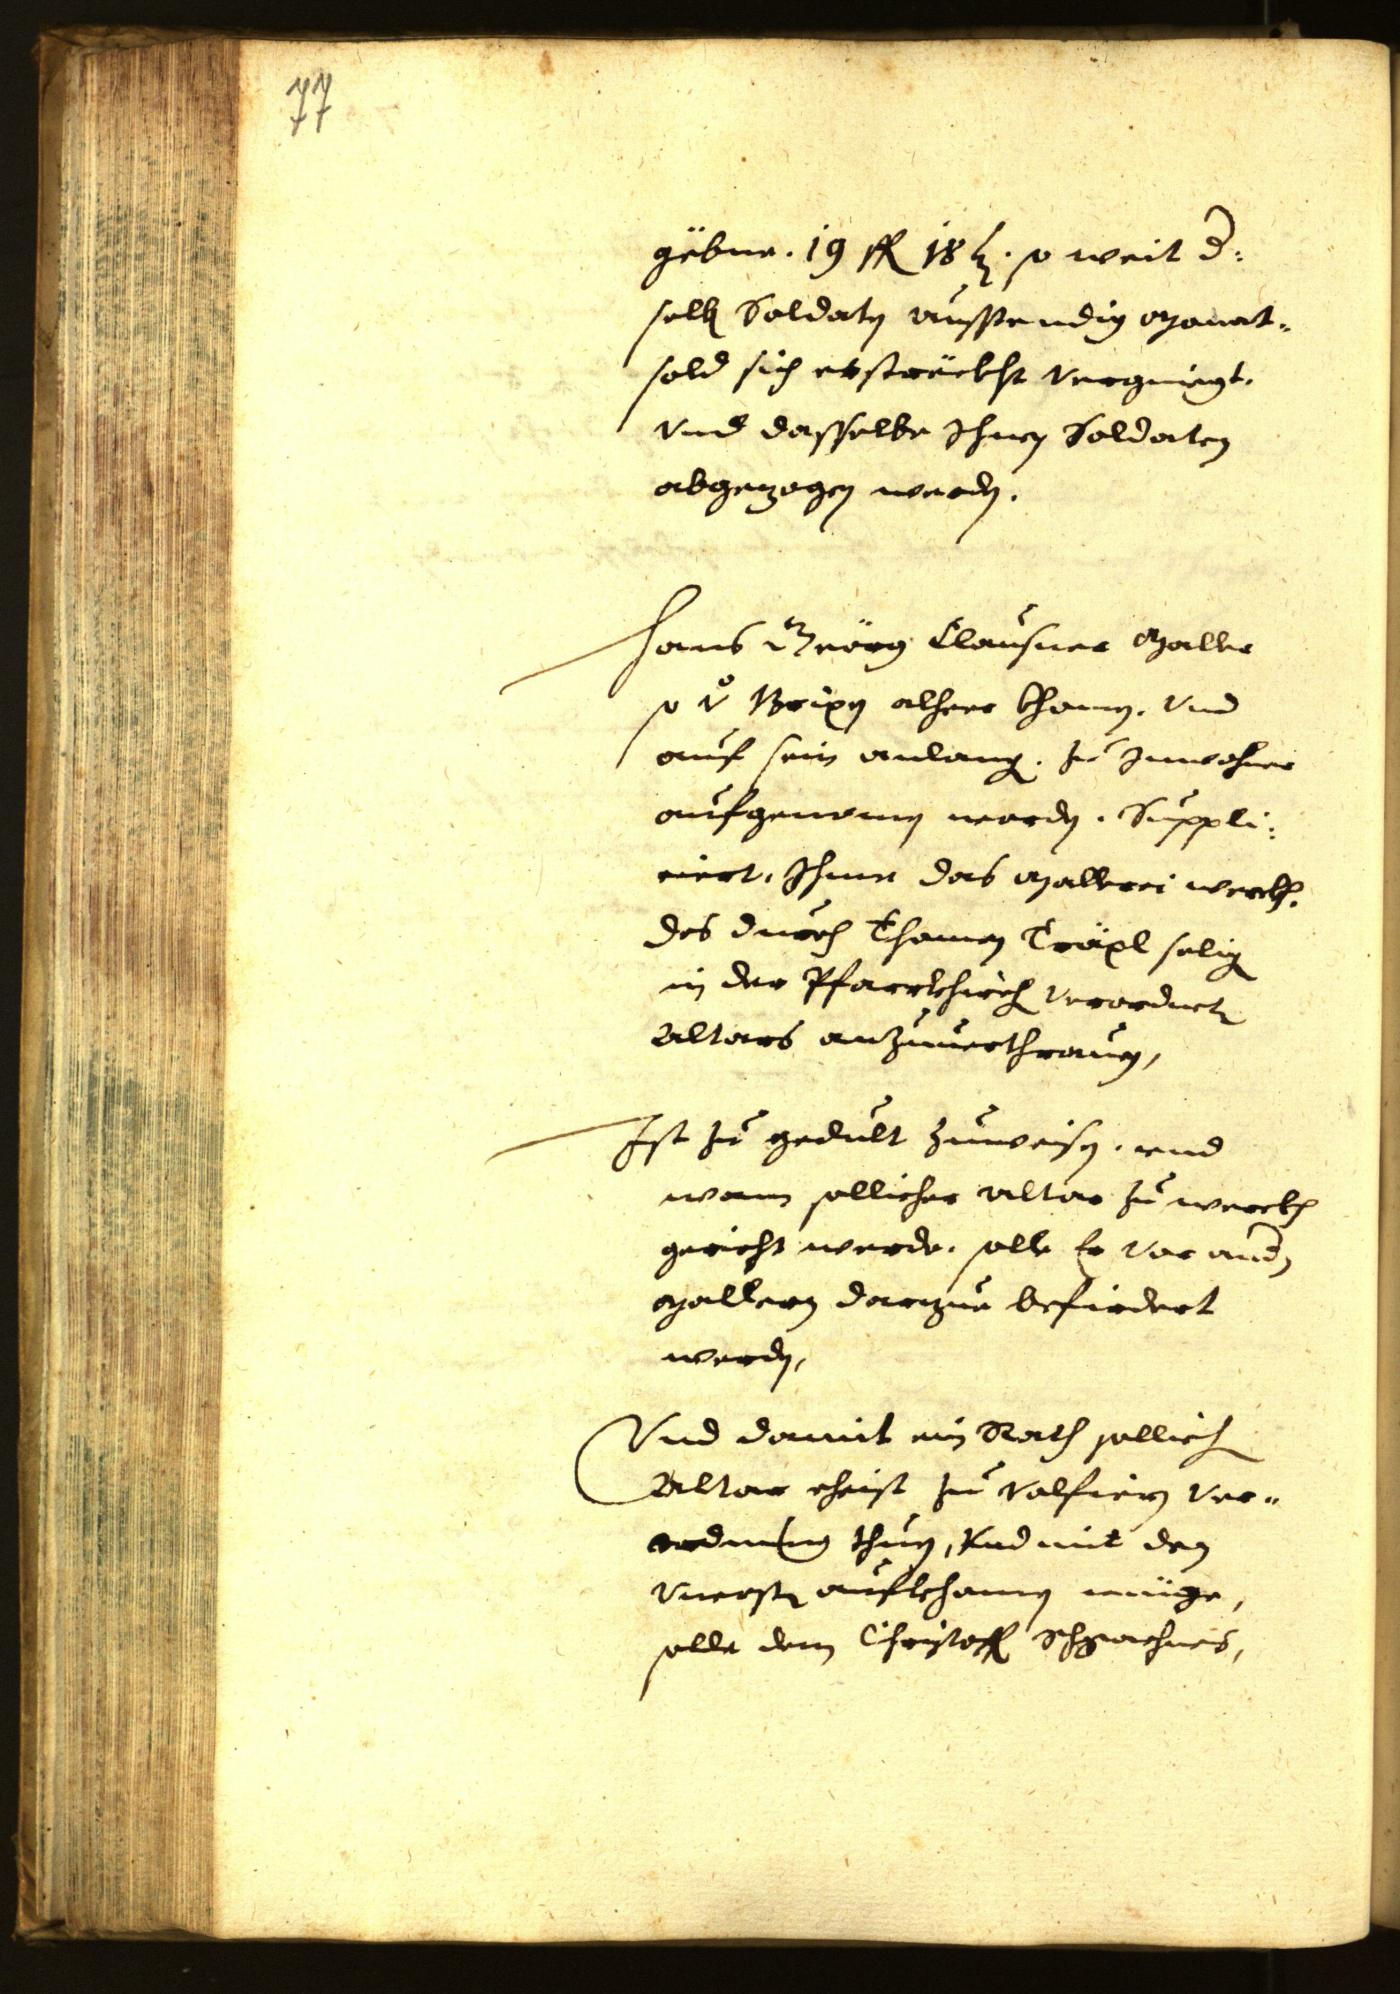 77
gebne. 19 fl 18 kr. so weit d:
selb Soldatn aussstendig Monat-
sold sich erströckht vergniegt.
Vnd dasselbe Ihnen Soldaten
abgezogen werdn.
Hans Geörg Clausner Maller
so v Brixn alheer khomn. Vnd
auf sein anlang. zu Inwohner
aufgenomn wordn. Suppli:
ciert. Ihme das Mallerei werckh.
des durch Thoman Träxl selig
in der Pfarrkhirch verordnet
Altars anzuverthrauen,
Ist zu gedult zuweisn. und
wann sollicher Altar zu werckh
gericht werde. solle Er vor and
Mallern darzue befirdert
werdn,
Vnd damit ein Rath sollich
Altar ehist zu volfiern Ver-
ordnung thun, Vnd mit den
Vncostn aufkhomn müge,
solle dem Christoff